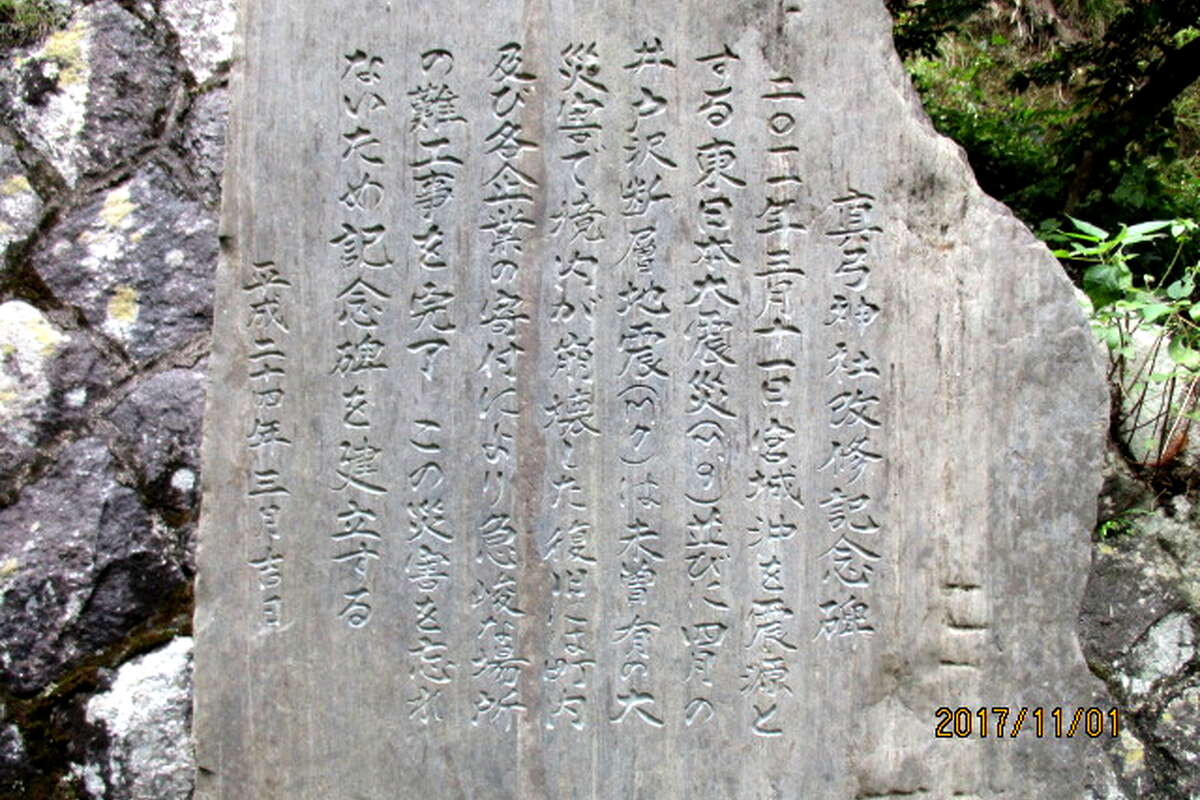 真弓神社改修記念碑
二〇一一年三月十一日宮城沖を震源と
する東日本大震災(M9)並びに四月の
井戸沢断層地震(M7)は未曽有の大
災害で境内が崩壊した復旧には町内
及び各企業の寄付により急峻な場所
の難工事を完了 この災害を忘れ
ないため記念碑を建立する
平成二十四年三月吉日
2017/11/01